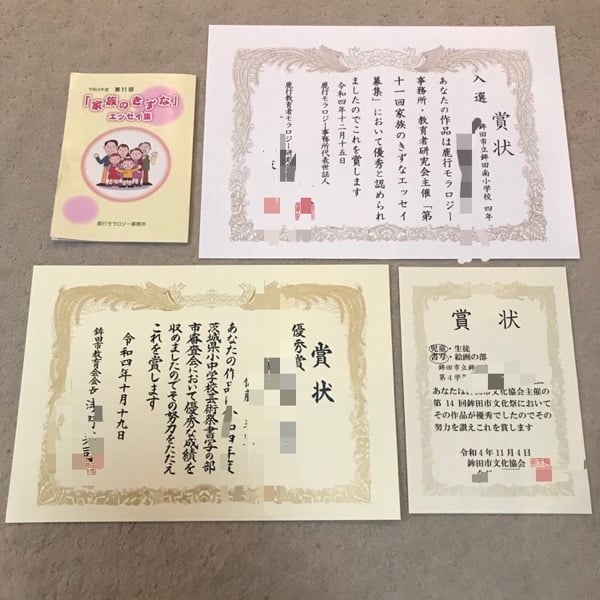 令和4年度 第11回
「家族のきずな」
エッセイ集
鹿行モラロジー事務所
賞状
鉾田市立鉾田南小学校 四年
入選
あなたの作品は鹿行モラロジー
事務所・教育者研究会主催「第
十一回家族のきずなエッセイ
募集」において優秀と認められ
ましたのでこれを賞します
令和四年十二月十五日
鹿行モラロジー事務所代表世話人
鹿行教育者モラロジー研究会
賞状
優秀賞
あなたの作品は令和四年度
茨城県小中学校芸術祭書写の部
市審査会において優秀な成績を
収めましたのでその努力をたたえ
これを賞します
令和四年十月十九日
鉾田市教育会会長
賞 状
児童・生徒
書写・絵画の部
鉾田市立鉾
第4学
あなたは鉾田市文化協会主催の
第14回鉾田市文化祭において
その作品が優秀でしたのでその
努力を讃えこれを賞します
令和4年11月4日
鉾田市文化協会